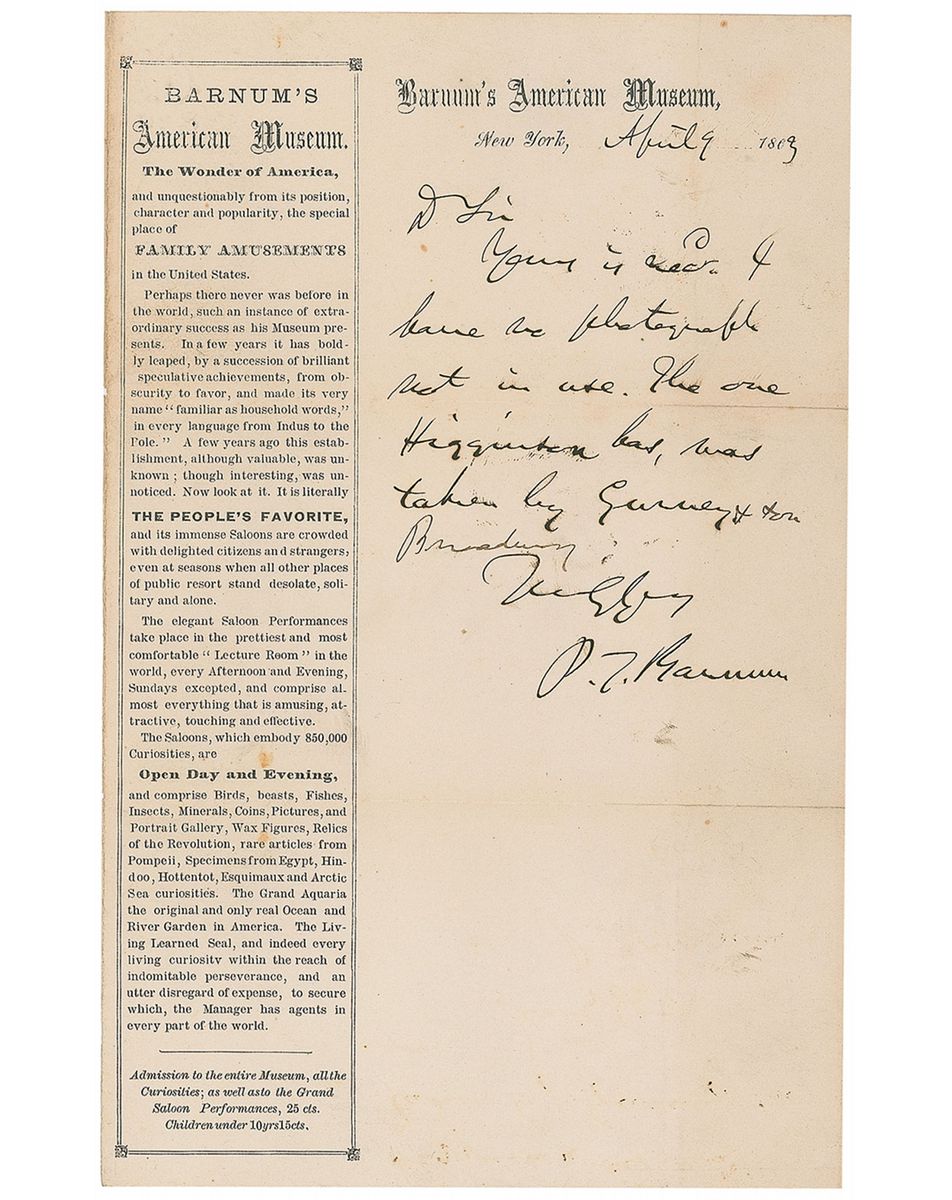 BARNUM'S
American Museum.
The Wonder of America,
and unquestionably from its position,
character and popularity, the special
place of
FAMILY AMUSEMENTS
in the United States.
Perhaps there never was before in
the world, such an instance of extra-
ordinary success as his Museum pre-
sents. In a few years it has bold-
ly leaped, by a succession of brilliant
speculative achievements, from ob-
scurity to favor, and made its very
name "familiar as household words,"
in every language from Indus to the
Pole." A few years ago this estab-
lishment, although valuable, was un-
known; though interesting, was un-
noticed. Now look at it. It is literally
THE PEOPLE'S FAVORITE,
and its immense Saloons are crowded
with delighted citizens and strangers,
even at seasons when all other places
of public resort stand desolate, soli-
tary and alone.
The elegant Saloon Performances
take place in the prettiest and most
comfortable "Lecture Room" in the
world, every Afternoon and Evening,
Sundays excepted, and comprise al-
most everything that is amusing, at-
tractive, touching and effective.
The Saloons, which embody 850,000
Curiosities, are
Open Day and Evening,
and comprise Birds, beasts, Fishes,
Insects, Minerals, Coins, Pictures, and
Portrait Gallery, Wax Figures, Relics
of the Revolution, rare articles from
Pompeii, Specimens from Egypt, Hin-
doo, Hottentot, Esquimaux and Arctic
Sea curiosities. The Grand Aquaria
the original and only real Ocean and
River Garden in America. The Liv-
ing Learned Seal, and indeed every
living curiosity within the reach of
indomitable perseverance, and an
utter disregard of expense, to secure
which, the Manager has agents in
every part of the world.
Admission to the entire Museum, all the
Curiosities; as well asto the Grand
Saloon Performances, 25 cts.
Children under 10yrs15cts.
Barnum's American Museum,
New York, April 9 1863
D Sir
Yours is recd. I
have no photograph
not in use. The one
Higginson has, was
taken by Gurney & Son
Broadway
P. T. Barnum